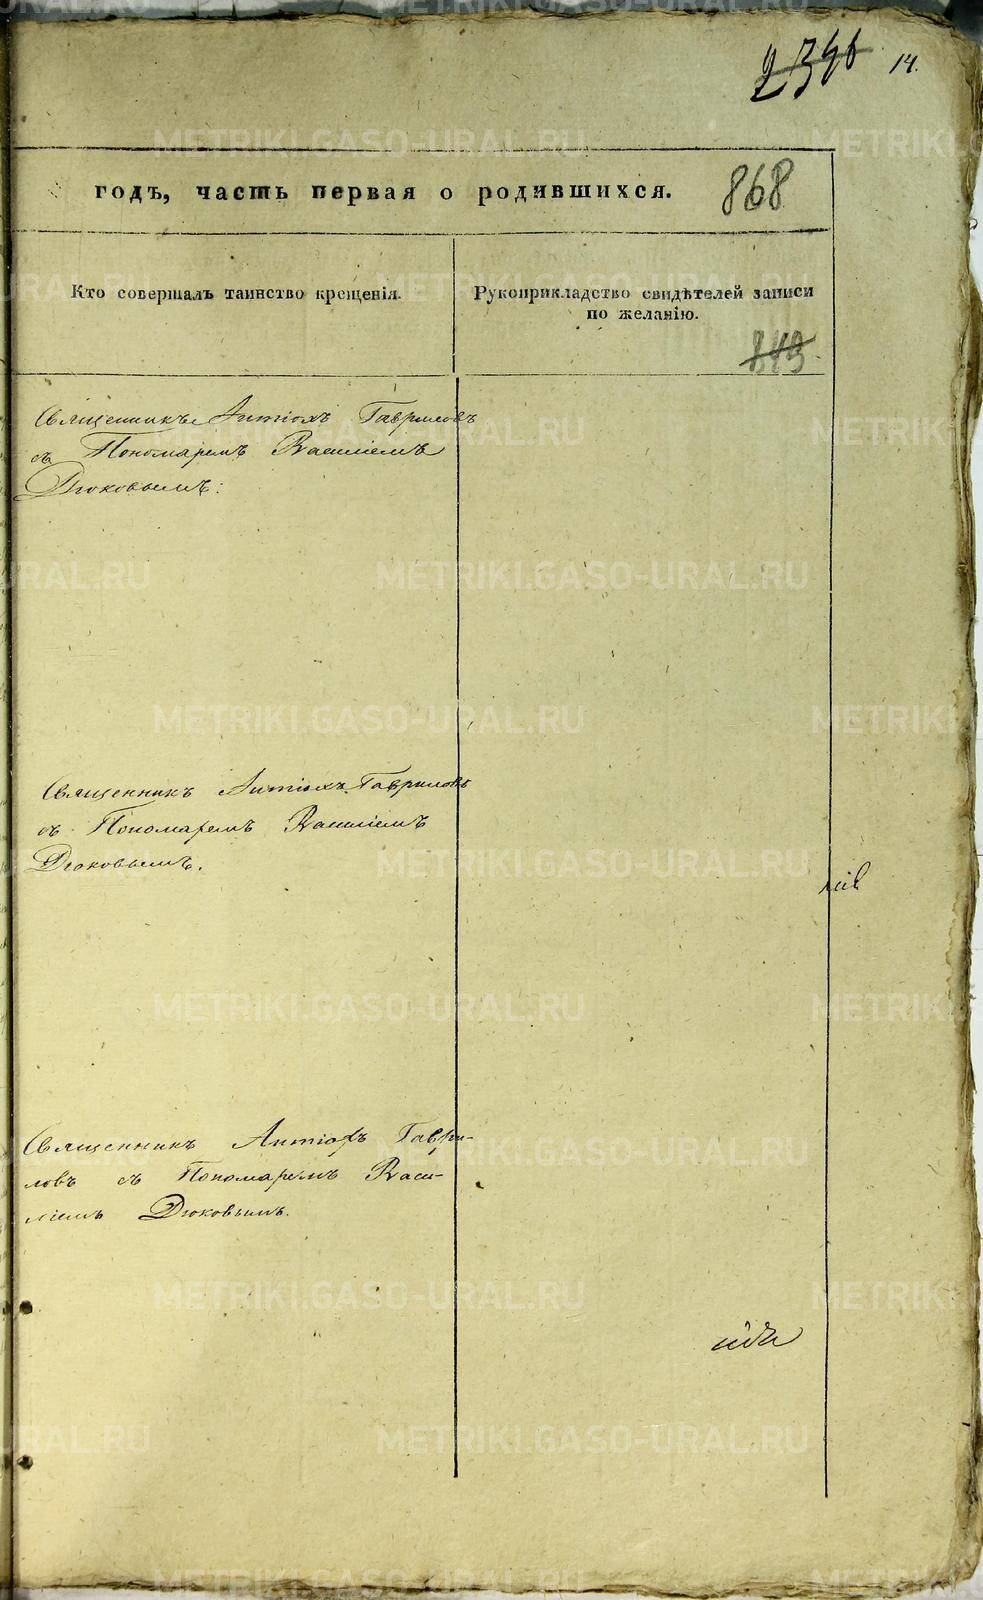 14.
годъ, часть первая о родившихся.
868
Кто совершалъ таинство крещенія.
Рукоприкладство свидѣтелей записи
по желанію.
Священникъ Антіохъ Гавриловъ
съ Пономаремъ Василіемъ
Дюковымъ:
Священникъ Антіохъ Гавриловъ
съ Пономаремъ Василіемъ
Дюковымъ.
Священникъ Антіохъ Гаври-
ловъ съ Пономаремъ Васи-
ліемъ Дюковымъ.
METRIKI.GASO-URAL.RU